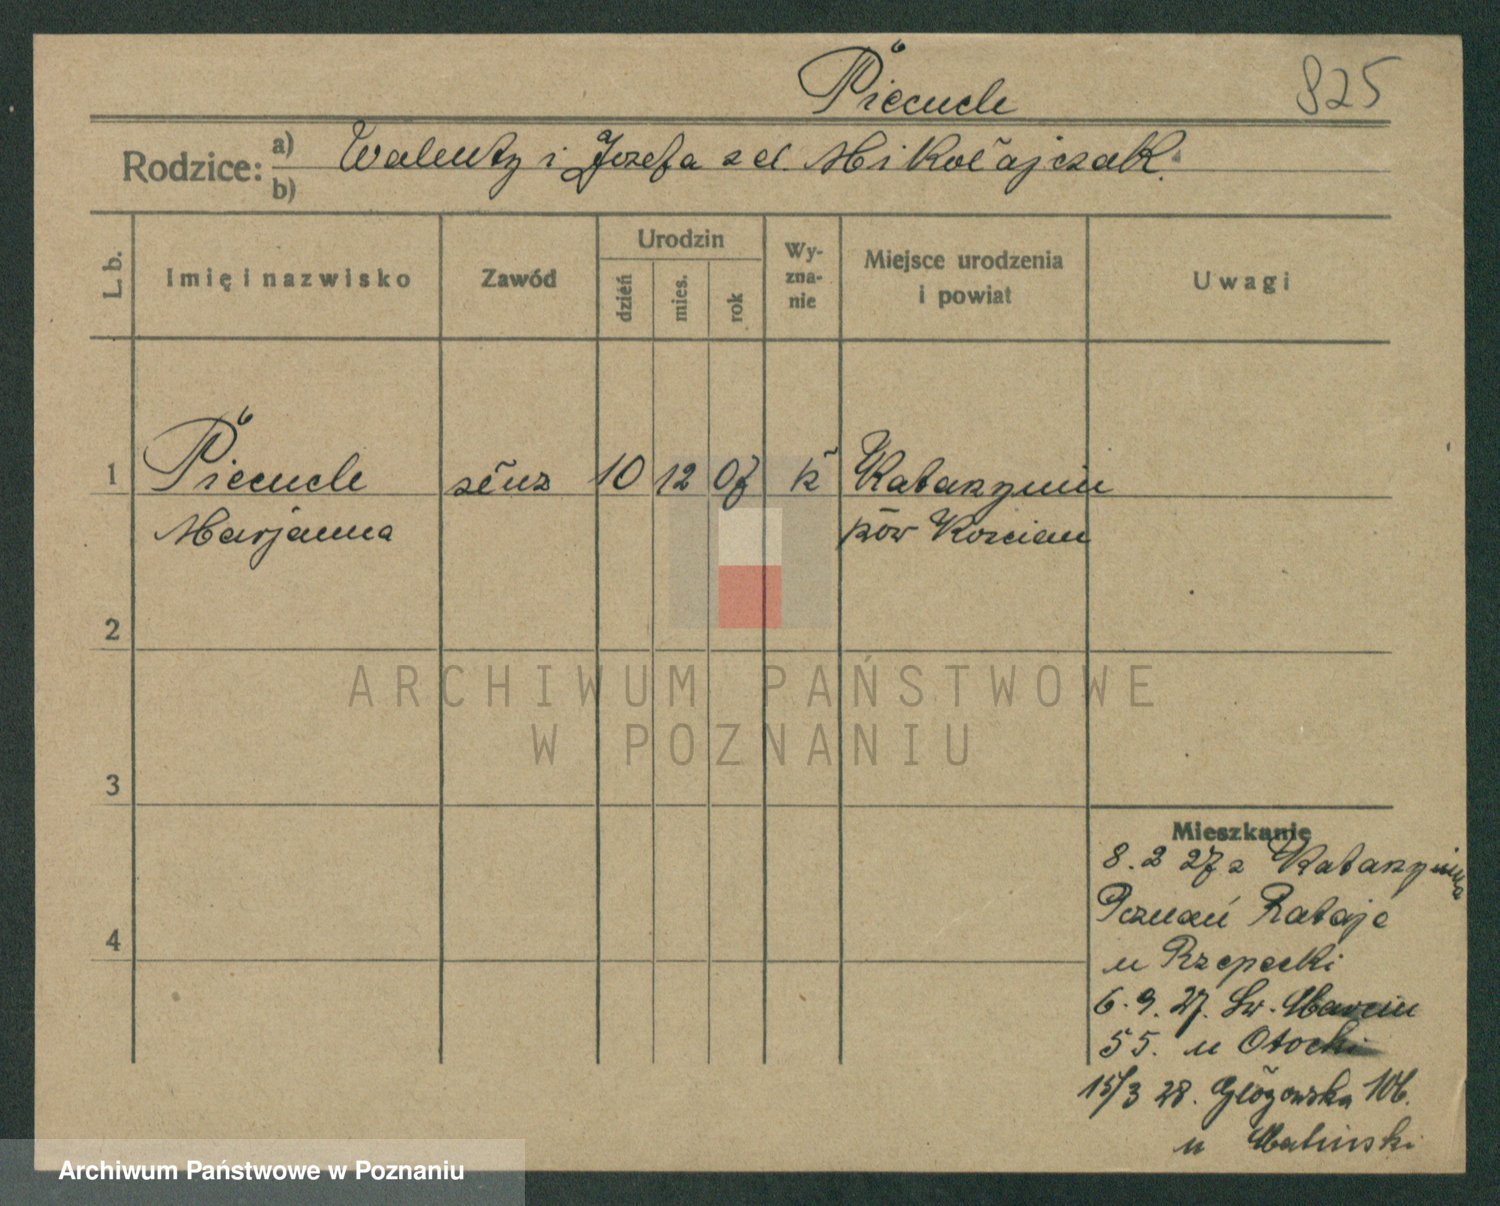 Piecuch
825
Rodzice: a) b) Walenty i Józefa z d. Mikołajczak.
L. b.
Imię i nazwisko
Zawód
Urodzin
dzień
mies.
rok
Wy-
zna-
nie
Miejsce urodzenia
i powiat
Uwagi
1 Piecuch służ 10 12 07 k Katarzynin
Marjanna pow Kościan
2
ARCHIWUM PAŃSTWOWE
W POZNANIU
3
Mieszkanie
8. 2 27 z Katarzynina
Poznań Rataje
4
u Rzepecki
6. 9. 27. Św. Marcin
55. u Otocki
15/3 28. Głogowska 106.
u Maliński
Archiwum Państwowe w Poznaniu